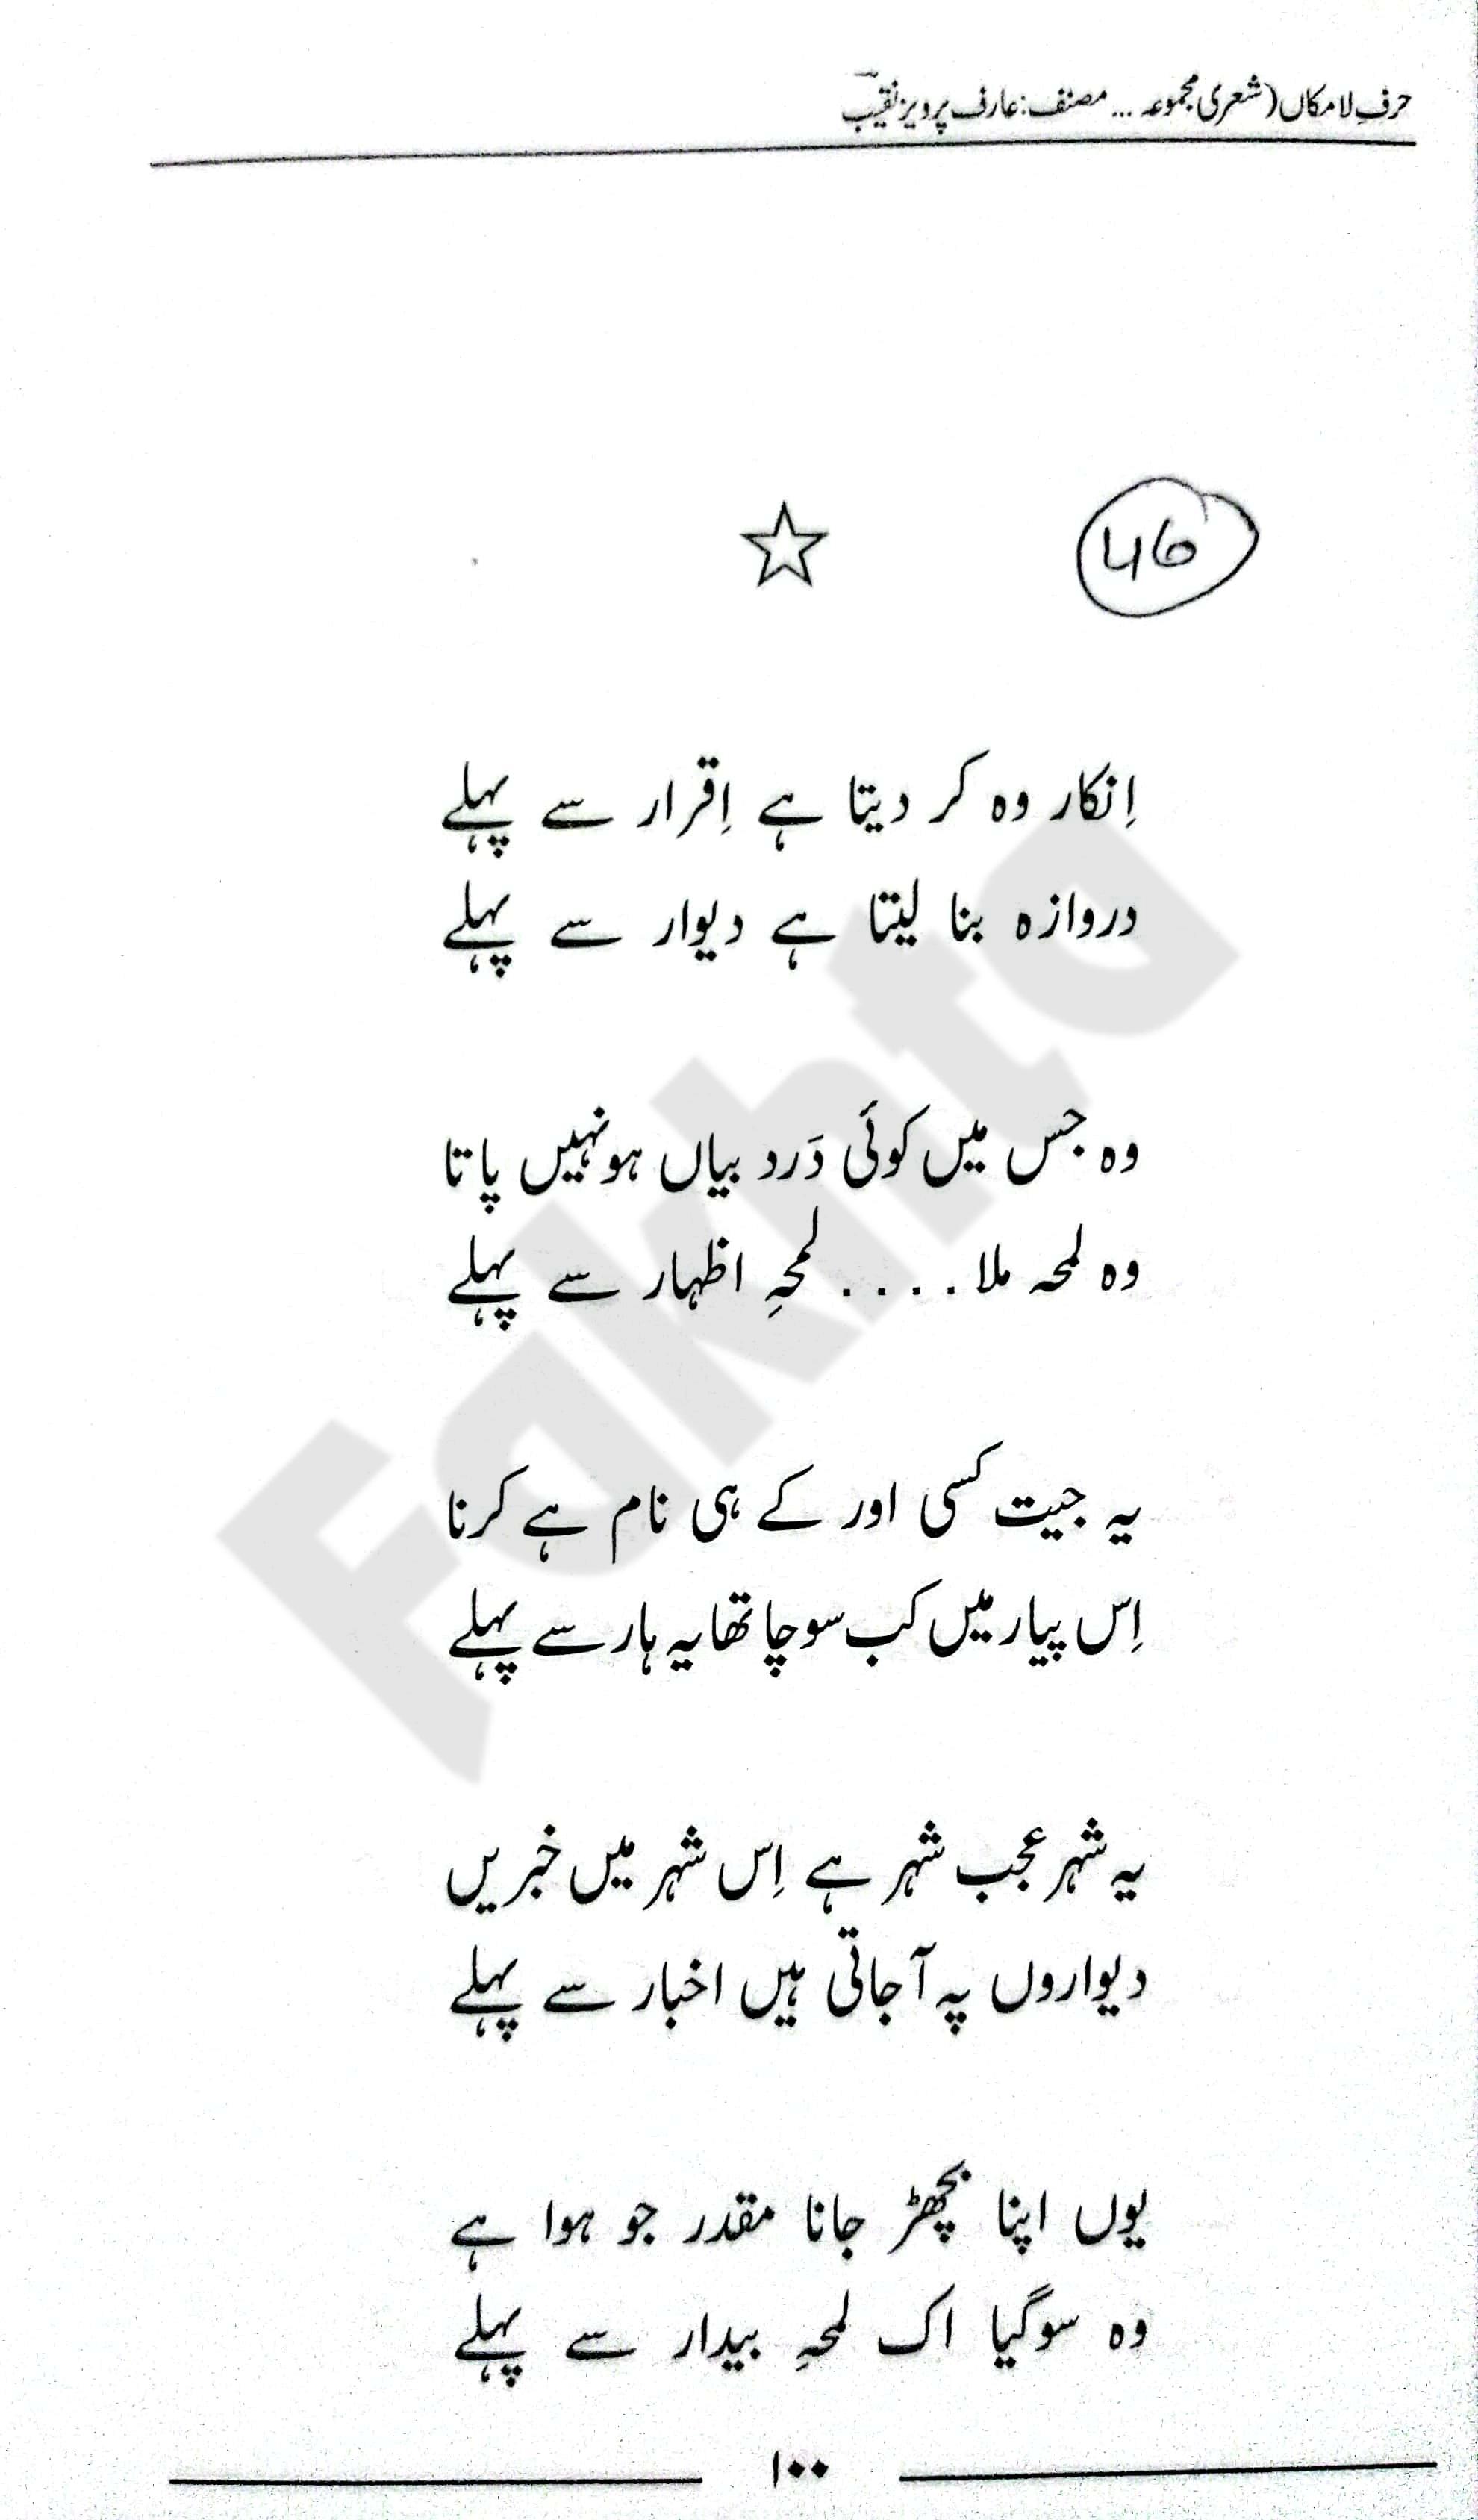 حرفِ لامکاں (شعری مجموعہ ... مصنف: عارف پرویز نقیبؔ
46
اِنکار وہ کر دیتا ہے اِقرار سے پہلے
دروازہ بنا لیتا ہے دیوار سے پہلے
وہ جس میں کوئی دَرد بیاں ہو نہیں پاتا
وہ لمحہ ملا .... لمحہِ اظہار سے پہلے
یہ جیت کسی اور کے ہی نام ہے کرنا
اِس پیار میں کب سوچا تھا یہ ہار سے پہلے
یہ شہر عجب شہر ہے اِس شہر میں خبریں
دیواروں پہ آ جاتی ہیں اخبار سے پہلے
یوں اپنا بچھڑ جانا مقدر جو ہوا ہے
وہ سو گیا اک لمحہِ بیدار سے پہلے
۱۰۰
Fakhta